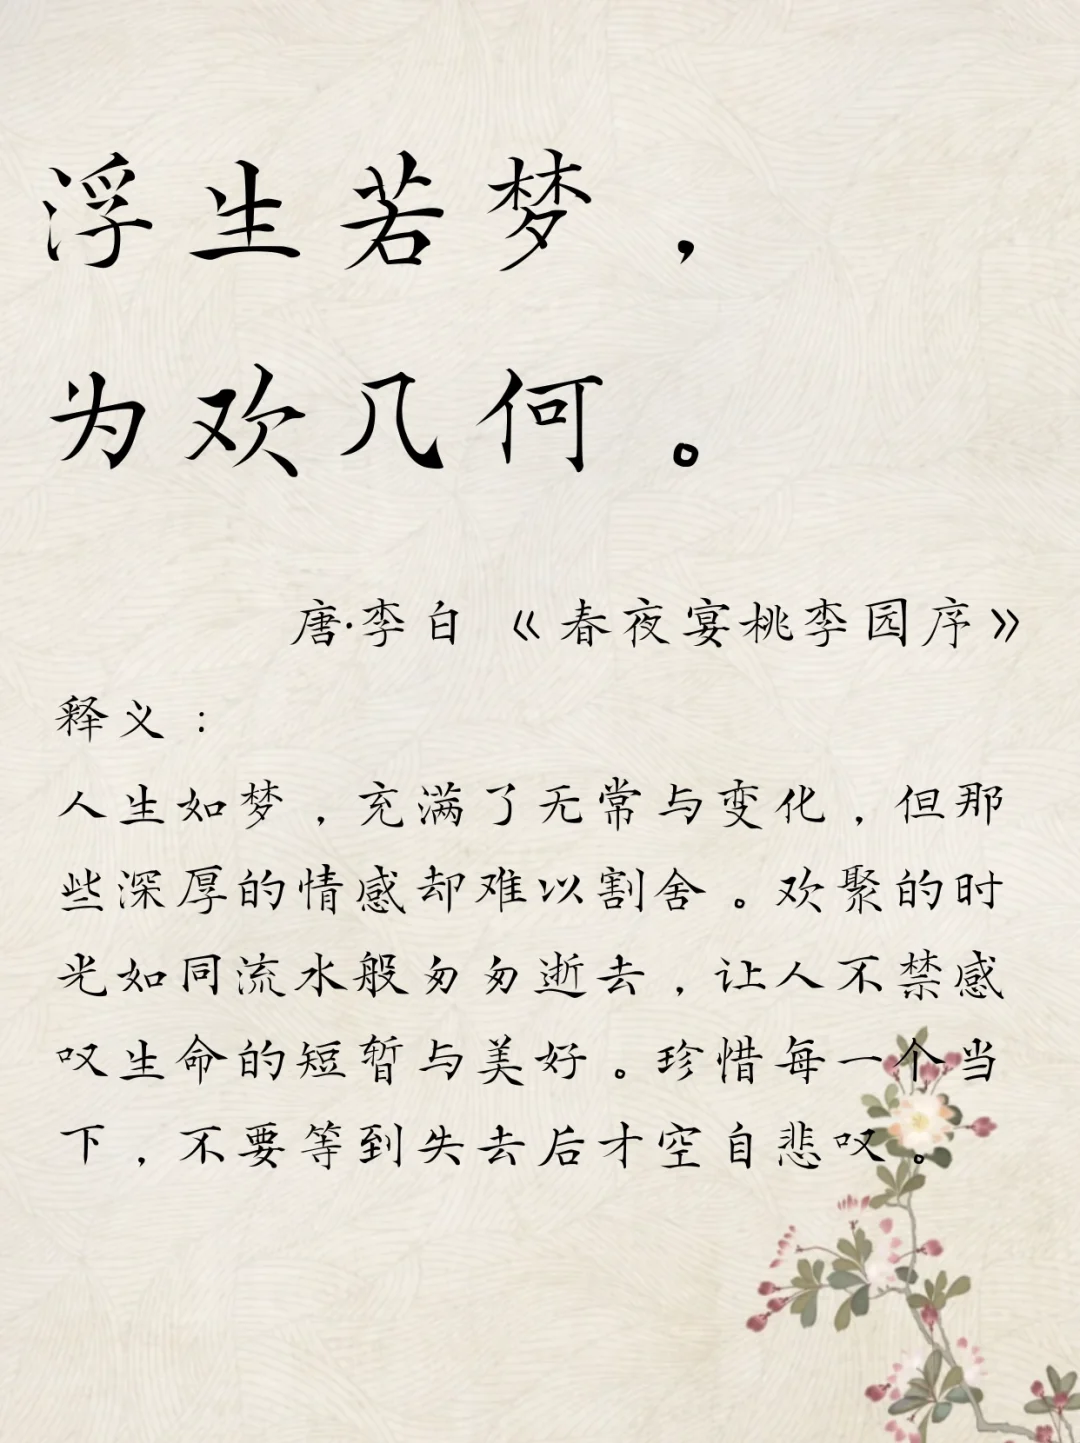 浮生若梦，
为欢几何。
唐·李白《春夜宴桃李园序》
释义：
人生如梦，充满了无常与变化，但那
些深厚的情感却难以割舍。欢聚的时
光如同流水般匆匆逝去，让人不禁感
叹生命的短暂与美好。珍惜每一个当
下，不要等到失去后才空自悲叹。